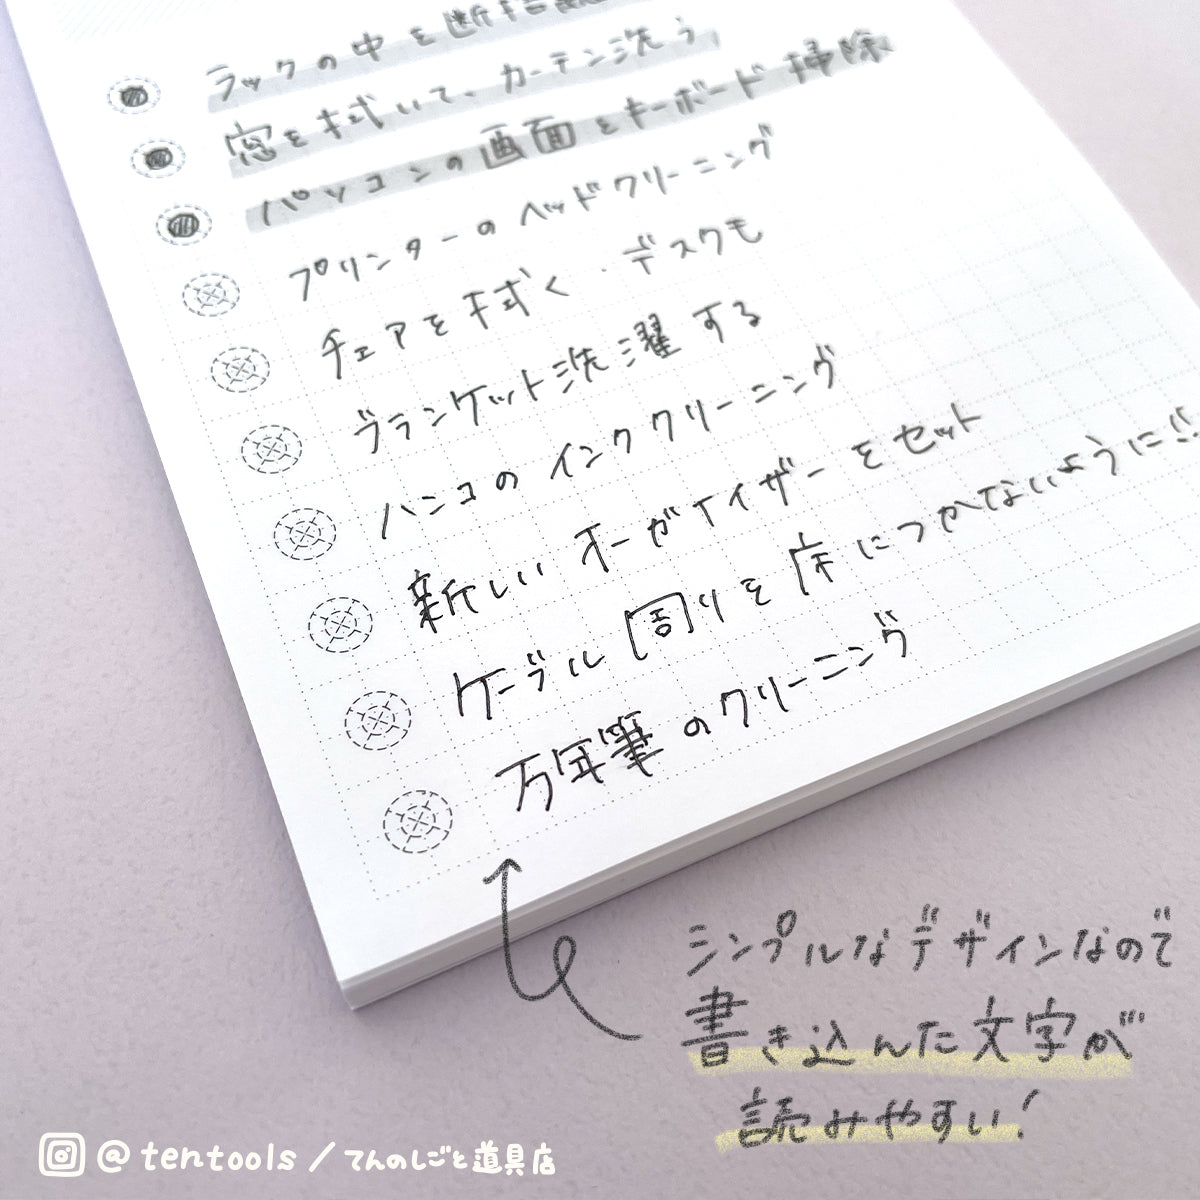 ラックの中を断捨離
窓を拭いて、カーテン洗う
パソコンの画面をキーボード掃除
プリンターのヘッドクリーニング
チェアを拭く・デスクも
ブランケット洗濯する
ハンコのインククリーニング
新しいオーガナイザーをセット
ケーブル周りを床につかないように!!
万年筆のクリーニング
シンプルなデザインなので
書き込んだ文字が
読みやすい!
@tentools/てんのしごと道具店